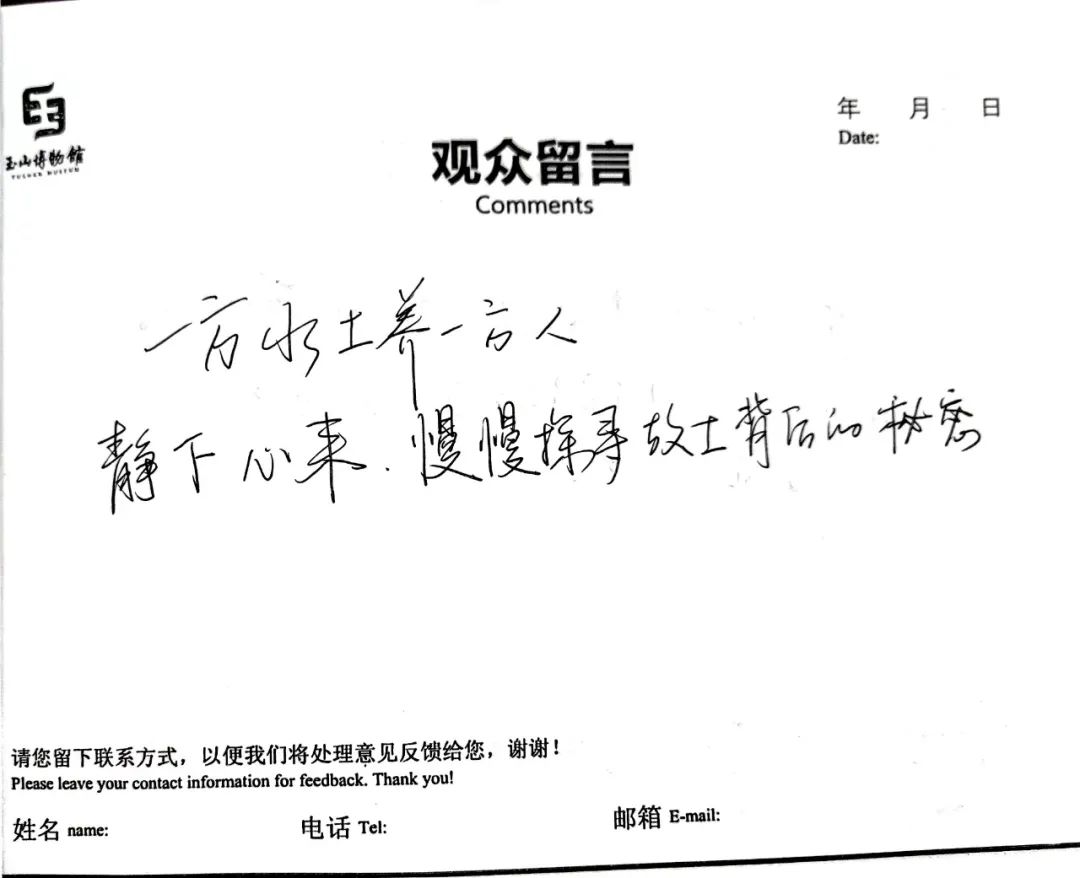 玉山博物馆
YUSHAN MUSEUM
年 月 日
Date:
观众留言
Comments
一方水土养一方人
静下心来.慢慢探寻故土背后的秘密
请您留下联系方式，以便我们将处理意见反馈给您，谢谢！
Please leave your contact information for feedback. Thank you!
姓名 name: 电话 Tel: 邮箱 E-mail: